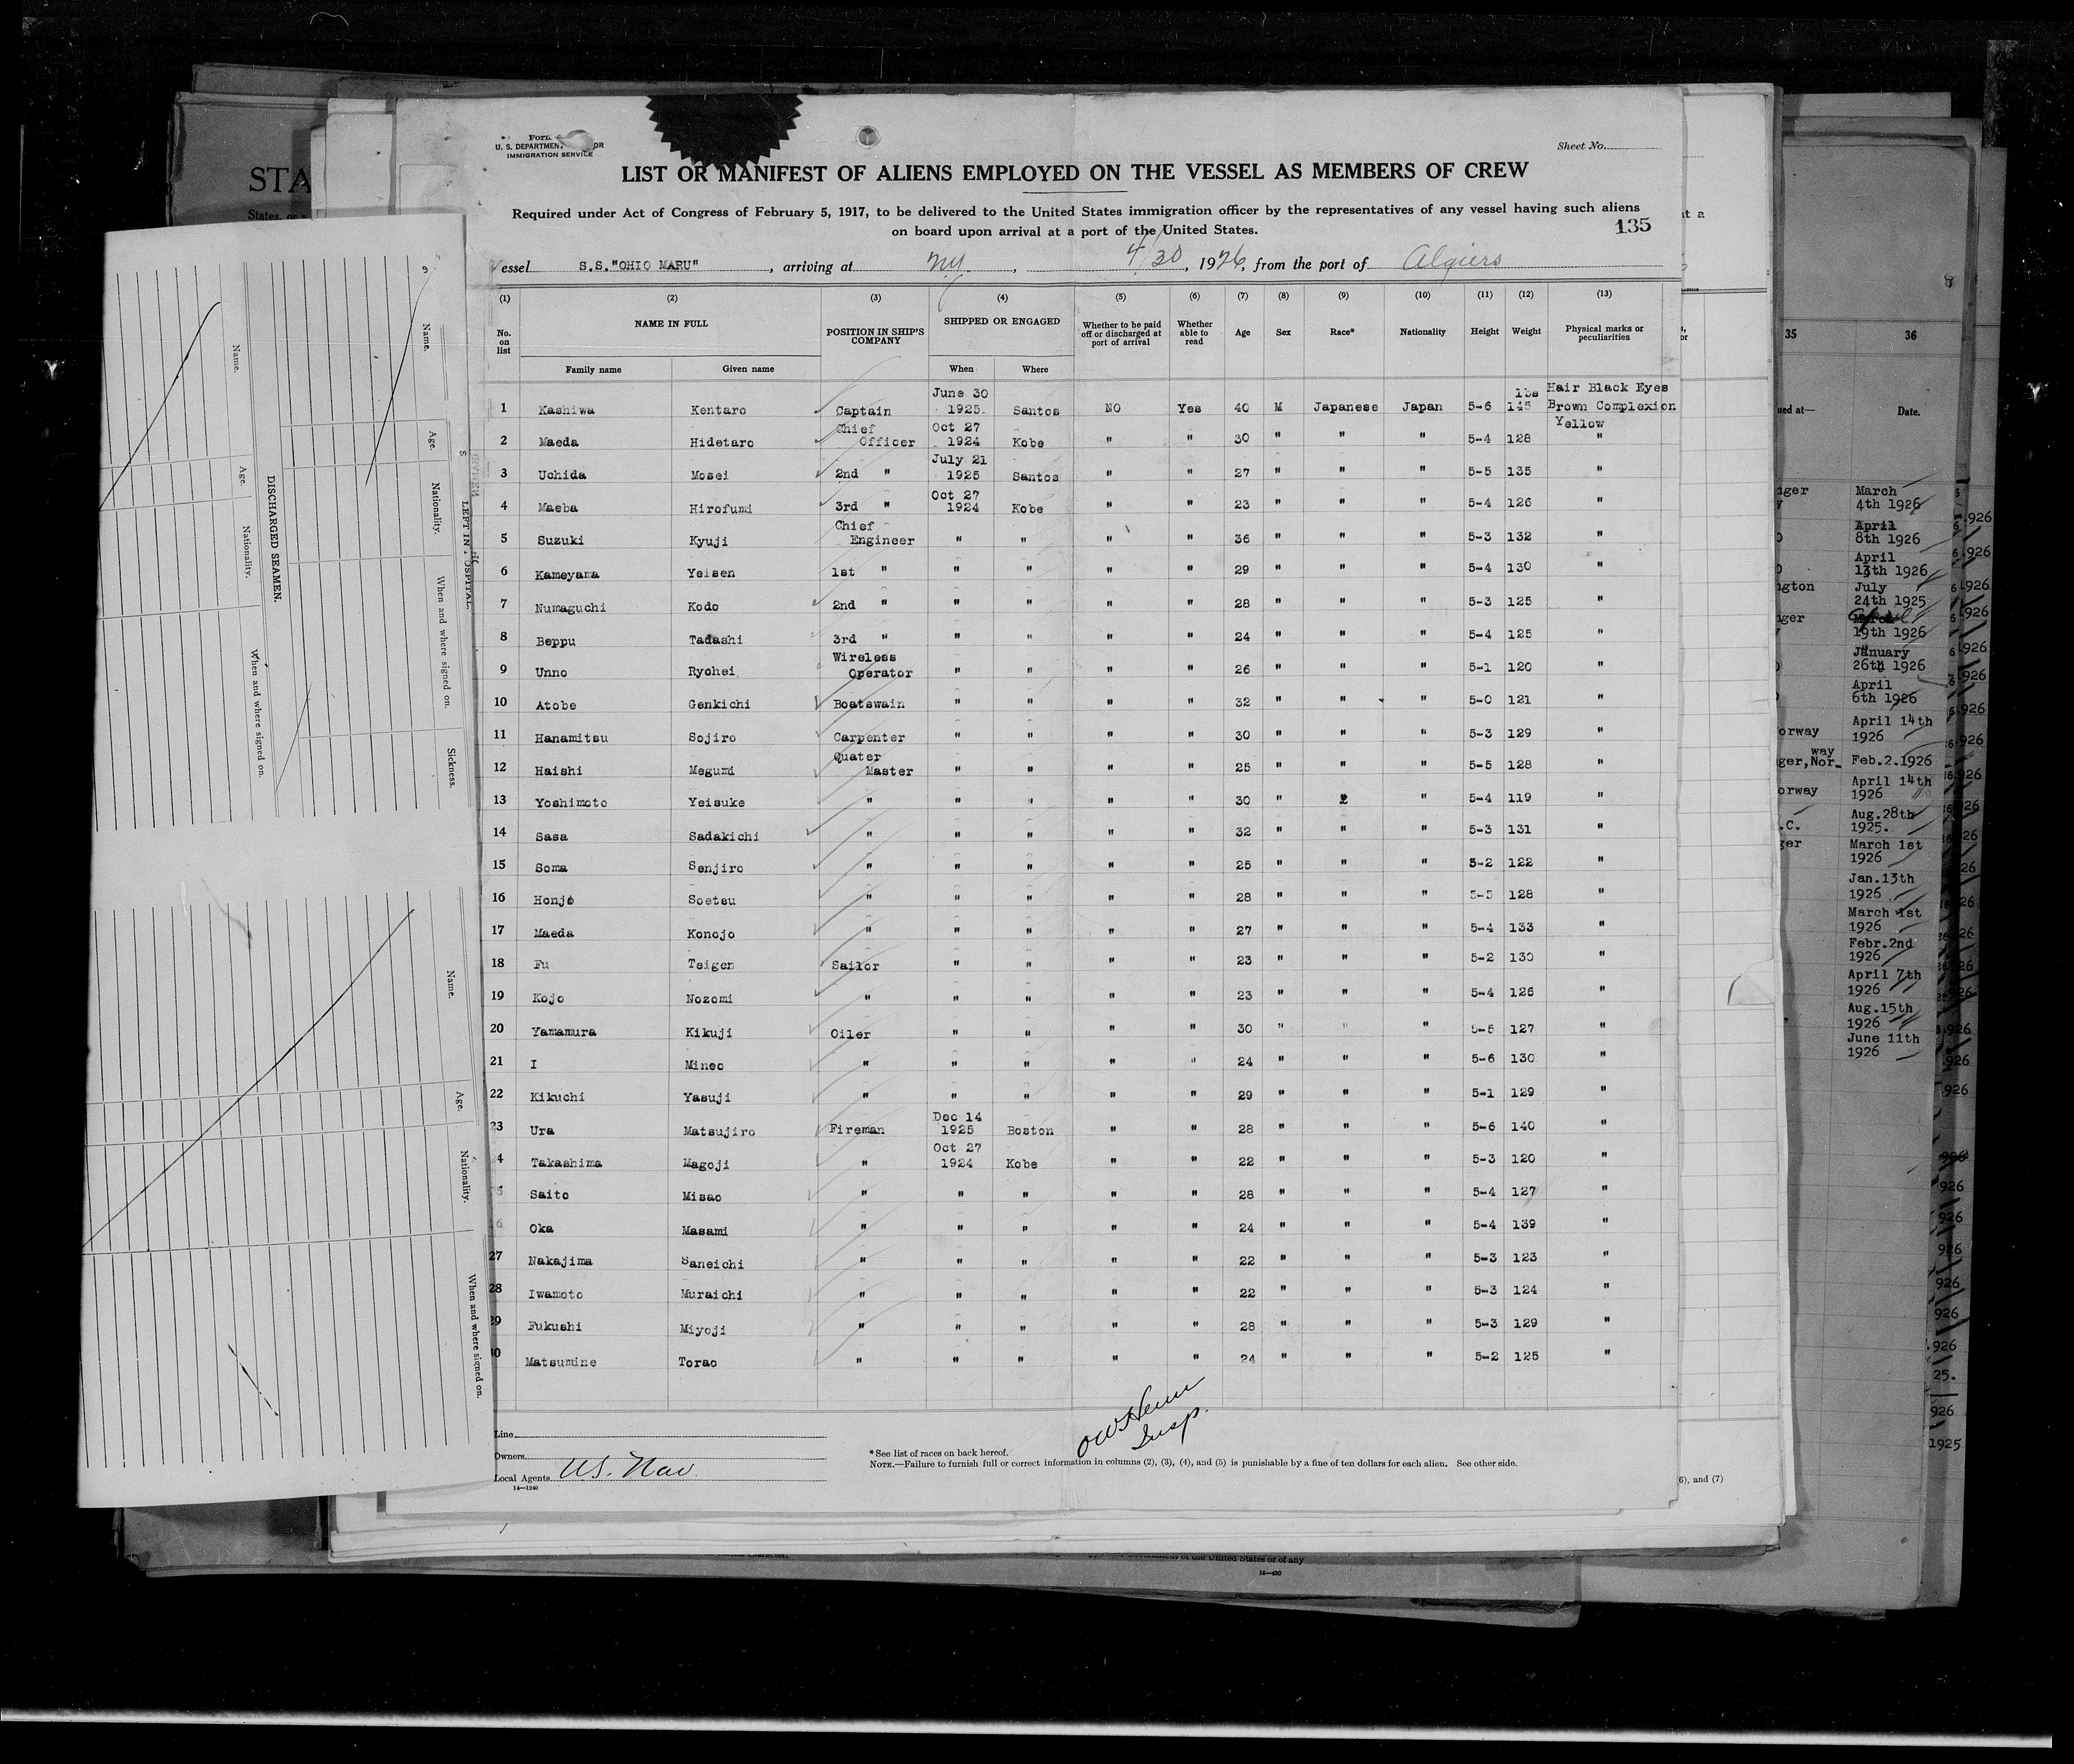 Form
U. S. DEPARTMENT OR
IMMIGRATION SERVICE
Sheet No.
LIST OR MANIFEST OF ALIENS EMPLOYED ON THE VESSEL AS MEMBERS OF CREW
Required under Act of Congress of February 5, 1917, to be delivered to the United States immigration officer by the representatives of any vessel having such aliens
on board upon arrival at a port of the United States.
135
Vessel S.S."OHIO MARU" , arriving at NY , 4/30 , 1926, from the port of Algiers
(1) (2) (3) (4) (5) (6) (7) (8) (9) (10) (11) (12) (13)
No. on list NAME IN FULL POSITION IN SHIP'S COMPANY SHIPPED OR ENGAGED Whether to be paid off or discharged at port of arrival Whether able to read Age Sex Race* Nationality Height Weight Physical marks or peculiarities
Family name Given name When Where
1 Kashiwa Kentaro Captain June 30 1925 Santos NO Yes 40 M Japanese Japan 5-6 lbs 145 Hair Black Eyes Brown Complexion Yellow
2 Maeda Hidetaro Chief Officer Oct 27 1924 Kobe " " 30 " " " 5-4 128 "
3 Uchida Mosei 2nd " July 21 1925 Santos " " 27 " " " 5-5 135 "
4 Maeba Hirofumi 3rd " Oct 27 1924 Kobe " " 23 " " " 5-4 126 "
5 Suzuki Kyuji Chief Engineer " " " " 36 " " " 5-3 132 "
6 Kameyama Yeisen 1st " " " " " 29 " " " 5-4 130 "
7 Numaguchi Kodo 2nd " " " " " 28 " " " 5-3 125 "
8 Beppu Tadashi 3rd " " " " " 24 " " " 5-4 125 "
9 Unno Ryohei Wireless Operator " " " " 26 " " " 5-1 120 "
10 Atobe Genkichi Boatswain " " " " 32 " " " 5-0 121 "
11 Hanamitsu Sojiro Carpenter " " " " 30 " " " 5-3 129 "
12 Haishi Megumi Quater Master " " " " 25 " " " 5-5 128 "
13 Yoshimoto Yeisuke " " " " " 30 " " " 5-4 119 "
14 Sasa Sadakichi " " " " " 32 " " " 5-3 131 "
15 Soma Senjiro " " " " " 25 " " " 5-2 122 "
16 Honjo Soetsu " " " " " 28 " " " 5-5 128 "
17 Maeda Konojo " " " " " 27 " " " 5-4 133 "
18 Fu Teigen Sailor " " " " 23 " " " 5-2 130 "
19 Kojo Nozomi " " " " " 23 " " " 5-4 126 "
20 Yamamura Kikuji Oiler " " " " 30 " " " 5-5 127 "
21 I Mineo " " " " " 24 " " " 5-6 130 "
22 Kikuchi Yasuji " " " " " 29 " " " 5-1 129 "
23 Ura Matsujiro Fireman Dec 14 1925 Boston " " 28 " " " 5-6 140 "
24 Takashima Magoji " Oct 27 1924 Kobe " " 22 " " " 5-3 120 "
25 Saito Misao " " " " " 28 " " " 5-4 127 "
26 Oka Masami " " " " " 24 " " " 5-4 139 "
27 Nakajima Saneichi " " " " " 22 " " " 5-3 123 "
28 Iwamoto Muraichi " " " " " 22 " " " 5-3 124 "
29 Fukushi Miyoji " " " " " 28 " " " 5-3 129 "
30 Matsumine Torao " " " " " 24 " " " 5-2 125 "
Line
Owners
Local Agents U.S. Nav.
14—1240
Insp.
*See list of races on back hereof.
NOTE.—Failure to furnish full or correct information in columns (2), (3), (4), and (5) is punishable by a fine of ten dollars for each alien. See other side.
(6), and (7)
STA
DISCHARGED SEAMEN.
Name.
Age.
Nationality.
When and where signed on.
LEFT IN HOSPITAL.
Name.
Age.
Nationality.
When and where signed on.
Sickness.
Name.
Age.
Nationality.
When and where signed on.
35 36
ued at— Date.
March
4th 1926
April
8th 1926
April
13th 1926
July
24th 1925
19th 1926
January
26th 1926
April
6th 1926
April 14th
1926
Feb.2.1926
April 14th
1926
Aug.28th
1925.
March 1st
1926
Jan.13th
1926
March 1st
1926
Febr.2nd
1926
April 7th
1926
Aug.15th
1926
June 11th
1926
of the United States or of any
14—430